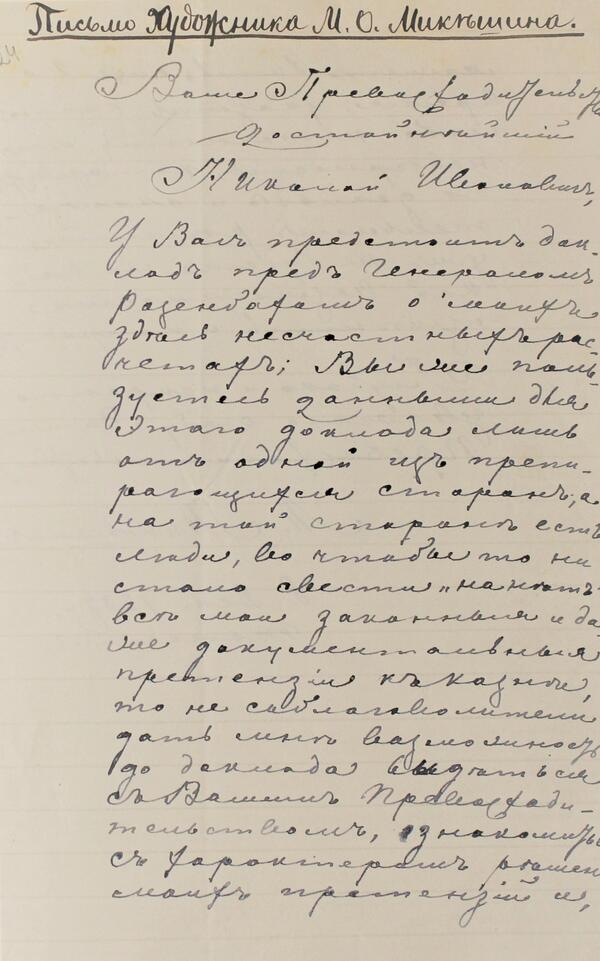 Письмо Художника М. О. Микѣшина.
24
Ваше Превосходительство
достойнѣйшій
Николай Ивановичъ,
У Васъ предстоитъ док-
ладъ предъ Генераломъ
Розенбахомъ о моихъ
здѣсь несчастныхъ рас-
четахъ; Вы же поль-
зуетесь данными для
этого доклада лишь
отъ одной изъ препи-
рающихся сторонъ, а
на той сторонѣ есть
люди, во чтобы то ни
стало свести „на нѣтъ"
всѣ мои законныя и да-
же документальныя
претензіи къ казнѣ,
то не соблаговолите ли
дать мнѣ возможность
до доклада видѣться
съ Вашимъ Превосходи-
тельствомъ, ознакомить
съ характеромъ
моихъ претензій и,